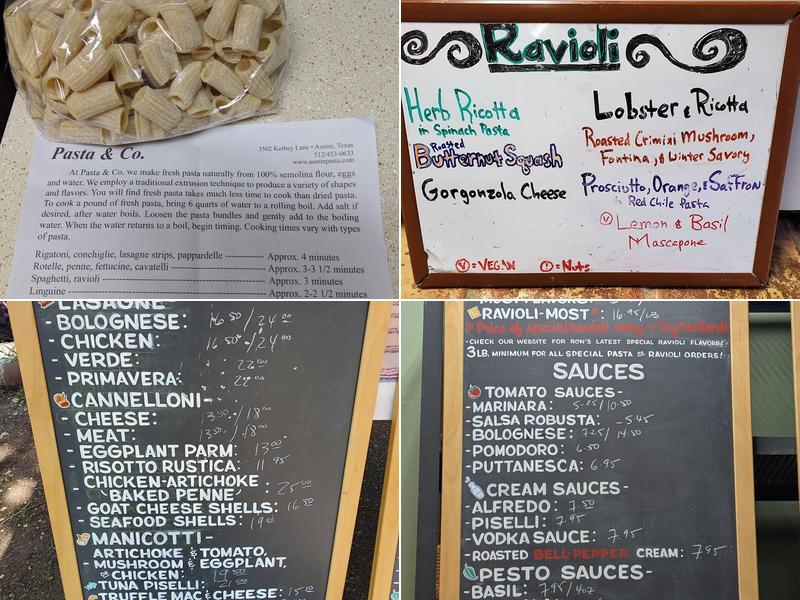 Pasta & Co.
3502 Kerbey Lane • Austin, Texas
512/453-0633
www.austinpasta.com
At Pasta & Co. we make fresh pasta naturally from 100% semolina flour, eggs
and water. We employ a traditional extrusion technique to produce a variety of shapes
and flavors. You will find fresh pasta takes much less time to cook than dried pasta.
To cook a pound of fresh pasta, bring 6 quarts of water to a rolling boil. Add salt if
desired, after water boils. Loosen the pasta bundles and gently add to the boiling
water. When the water returns to a boil, begin timing. Cooking times vary with types
of pasta.
Rigatoni, conchiglie, lasagne strips, pappardelle ------------ Approx. 4 minutes
Rotelle, penne, fettucine, cavatelli ------------ Approx. 3-3 1/2 minutes
Spaghetti, ravioli ------------ Approx. 3 minutes
Linguine ------------ Approx. 2-2 1/2 minutes
Ravioli
Herb Ricotta
in Spinach Pasta
Roasted
Butternut Squash
Gorgonzola Cheese
Lobster & Ricotta
Roasted Crimini Mushroom,
Fontina, & Winter Savory
Prosciutto, Orange, & Saffron
in Red Chile Pasta
(V) Lemon & Basil
Mascapone
(V) = VEGAN
= Nuts
LASAGNE
- BOLOGNESE: 16.50/24.00
- CHICKEN: 16.50/24.00
- VERDE: 22.00
- PRIMAVERA: 22.00
CANNELLONI-
- CHEESE: 13.50/18.00
- MEAT: 13.50/18.00
- EGGPLANT PARM: 13.00
- RISOTTO RUSTICA: 11.95
- CHICKEN-ARTICHOKE
"BAKED PENNE" 25.00
- GOAT CHEESE SHELLS: 16.50
- SEAFOOD SHELLS: 19.00
MANICOTTI-
ARTICHOKE & TOMATO,
- MUSHROOM & EGGPLANT,
OR CHICKEN: 19.50
- TUNA PISELLI: 21.00
- TRUFFLE MAC & CHEESE: 15.00
RAVIOLI-MOST*: 16.95/LB
*Price of special ravioli vary w/ingredients
-CHECK OUR WEBSITE FOR RON'S LATEST SPECIAL RAVIOLI FLAVORS!
3LB. MINIMUM FOR ALL SPECIAL PASTA OR RAVIOLI ORDERS!
SAUCES
TOMATO SAUCES-
-MARINARA: 5.25/10.50
-SALSA ROBUSTA: -5.45
-BOLOGNESE: 7.25/14.50
-POMODORO: 6.50
-PUTTANESCA: 6.95
CREAM SAUCES-
-ALFREDO: 7.50
-PISELLI: 7.95
-VODKA SAUCE: 7.95
-ROASTED BELL-PEPPER CREAM: 7.95
PESTO SAUCES-
-BASIL: 7.95/4oz